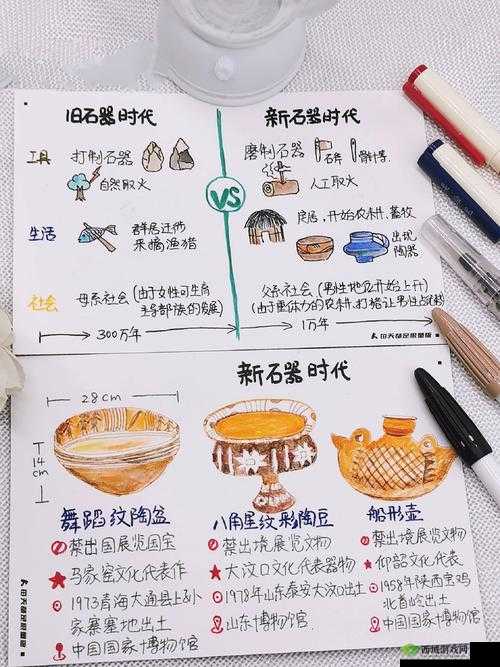 旧石器时代
新石器时代
工具
打制石器
自然取火
磨制石器
石斧
骨针等
人工取火
VS
生活
群居迁徙
采摘渔猎
房居,开始农耕、畜牧
出现
陶器
社会
母系社会(由于女性可生育
主导部族的发展)
父系社会(男性地位开始上升)
(由于重体力的农耕、打猎让男性占优势)
300万年
1万年
新石器时代
28cm
14cm
舞蹈纹陶盆
禁出国展览国宝
马家窑文化代表作
1973青海大通县上孙
家寨墓地出土
中国国家博物馆
八角星纹彩陶豆
禁出境展览文物
大汶口文化代表器物
1978年山东泰安大汶口出土
山东博物馆
船形壶
禁出境展览文物
仰韶文化代表
1958年陕西宝鸡
北首岭出土
中国国家博物馆
西域游戏网